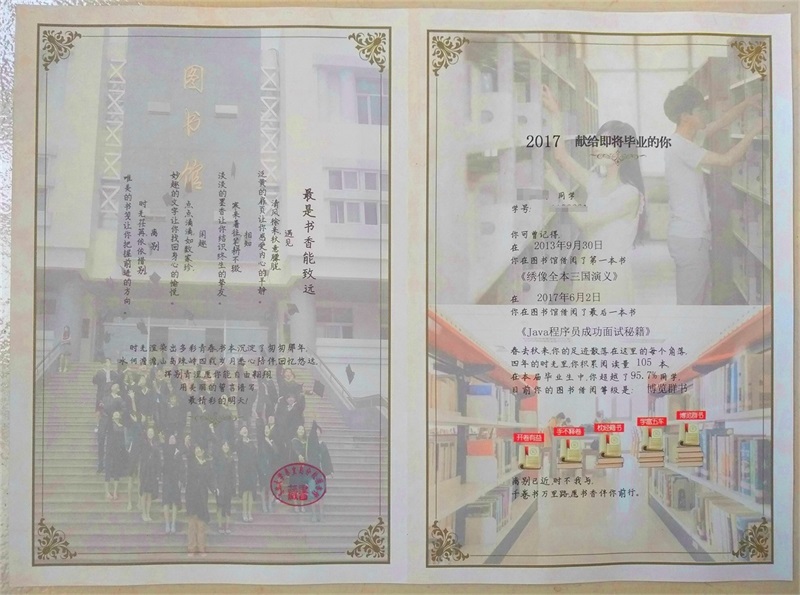 图书馆
最是书香能致远
遇见
清风徐来秋意朦胧
泛黄的扉页让你感受内心的平静。
相知
寒来暑往笔耕不辍
淡淡的墨香让你结识终生的挚友。
闲趣
点点滴滴如数家珍
妙趣的文字让你找回身心的愉悦。
离别
时光荏苒依依惜别
唯美的书笺让你把握前进的方向。
时光涅槃出多彩青春书本沉淀了匆匆那年
水何澹澹山岛竦峙四载岁月悉心陪伴回忆悠远
挥别青涩愿你能自由翱翔
用美丽的誓言谱写
最精彩的明天!
2017 献给即将毕业的你
同学
学号
你可曾记得,
在 2013年9月30日
你在图书馆借阅了第一本书
《绣像全本三国演义》
在 2017年6月2日
你在图书馆借阅了最后一本书
《Java程序员成功面试秘籍》
春去秋来你的足迹散落在这里的每个角落
四年的时光里你积累阅读量 105 本
在本届毕业生中你超越了 95.7% 同学
目前你的图书借阅等级是: 博览群书
开卷有益
手不释卷
枕经藉书
学富五车
博览群书
离别已近,时不我与,
千卷书万里路愿书香伴你前行。